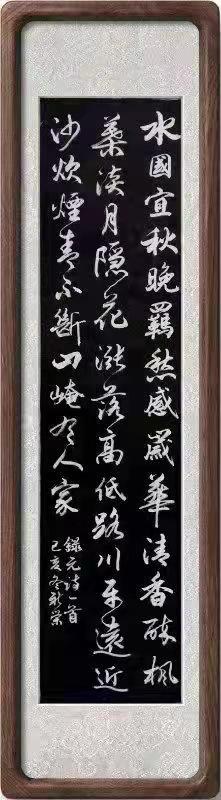 水國宜秋晚羈愁感歲華清香醉楓
葉淡月隱花漲落高低路川平遠近
沙炊煙青不斷山崦有人家
錄元詩一首
己亥冬新榮